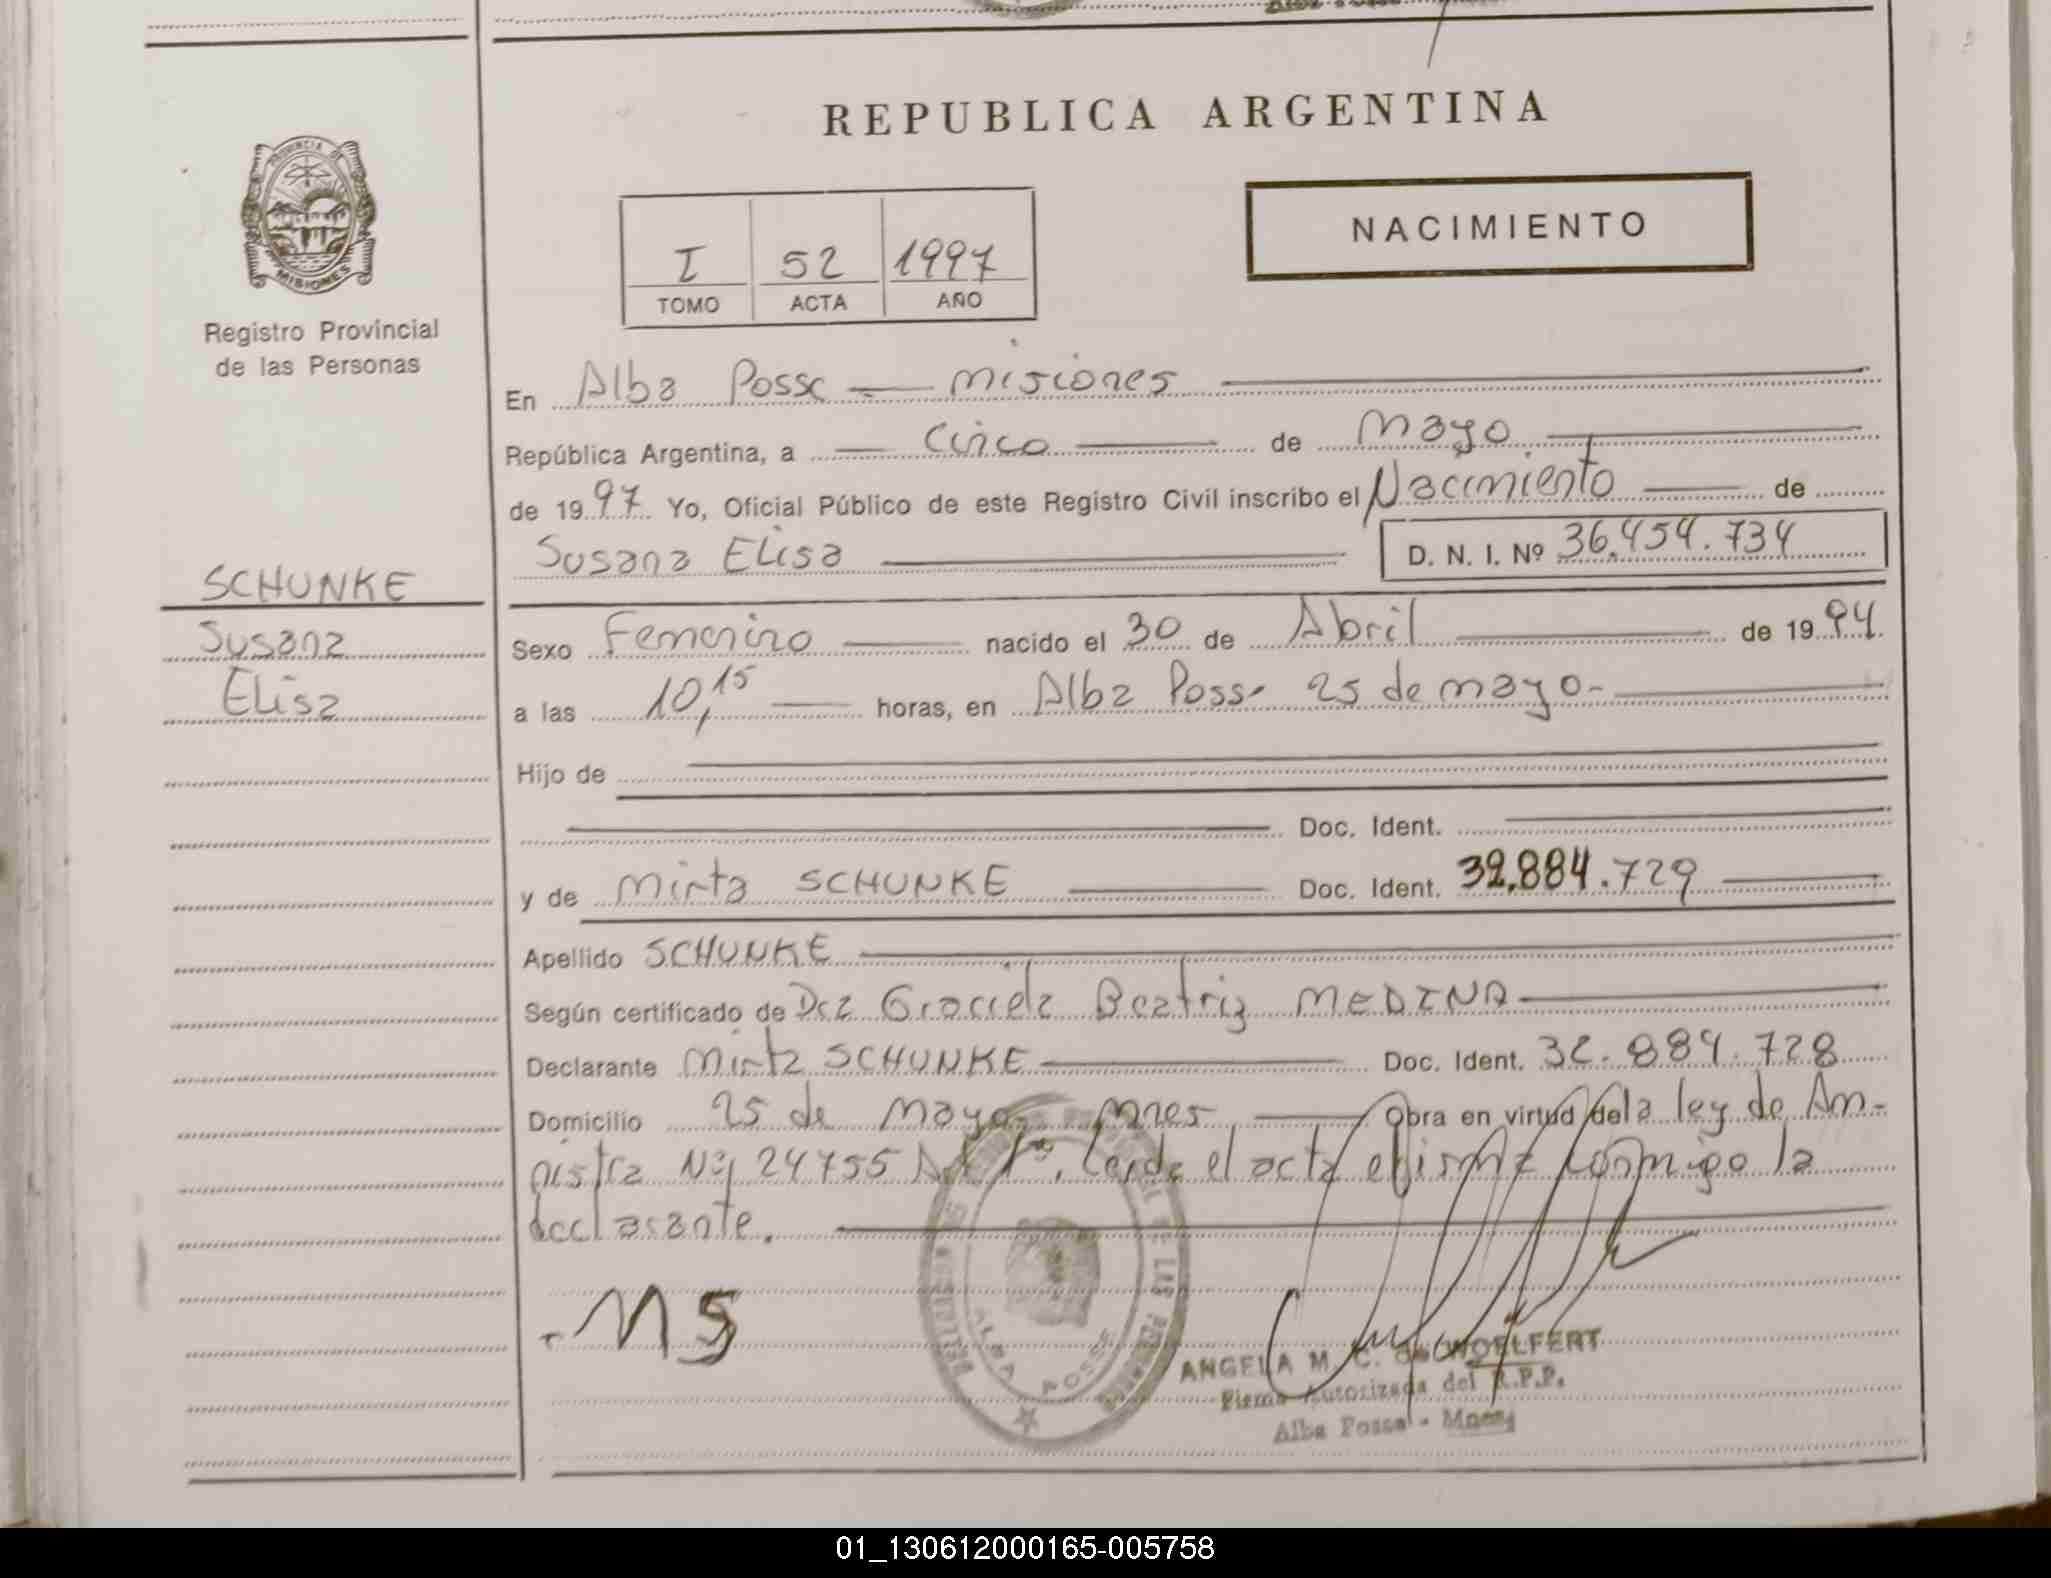 REPUBLICA ARGENTINA
PROVINCIA DE
MISIONES
Registro Provincial
de las Personas
NACIMIENTO
I 52 1997
TOMO ACTA AÑO
En Alba Posse — Misiones
República Argentina, a — Cinco — de Mayo
de 1997 Yo, Oficial Público de este Registro Civil inscribo el Nacimiento — de
Susana Elisa — D. N. I. Nº 36.454.734
SCHUNKE
Susana
Elisa
Sexo Femenino — nacido el 30 de Abril — de 1994
a las 10,15 — horas, en Alba Posse 25 de mayo-
Hijo de
Doc. Ident.
y de Mirta SCHUNKE — Doc. Ident. 32.884.729
Apellido SCHUNKE
Según certificado de Dra Graciela Beatriz MEDINA
Declarante Mirta SCHUNKE — Doc. Ident. 32.884.728
Domicilio 25 de Mayo Mnes — Obra en virtud de la ley de Am-
nistia Nº 24755 Art 1º, Leida el acta firma conmigo la
declarante.
MS
ALBA POSSE
ANGELA M. C. de WOELFERT
Firma Autorizada del R.P.P.
Alba Posse - Mnes
01_130612000165-005758